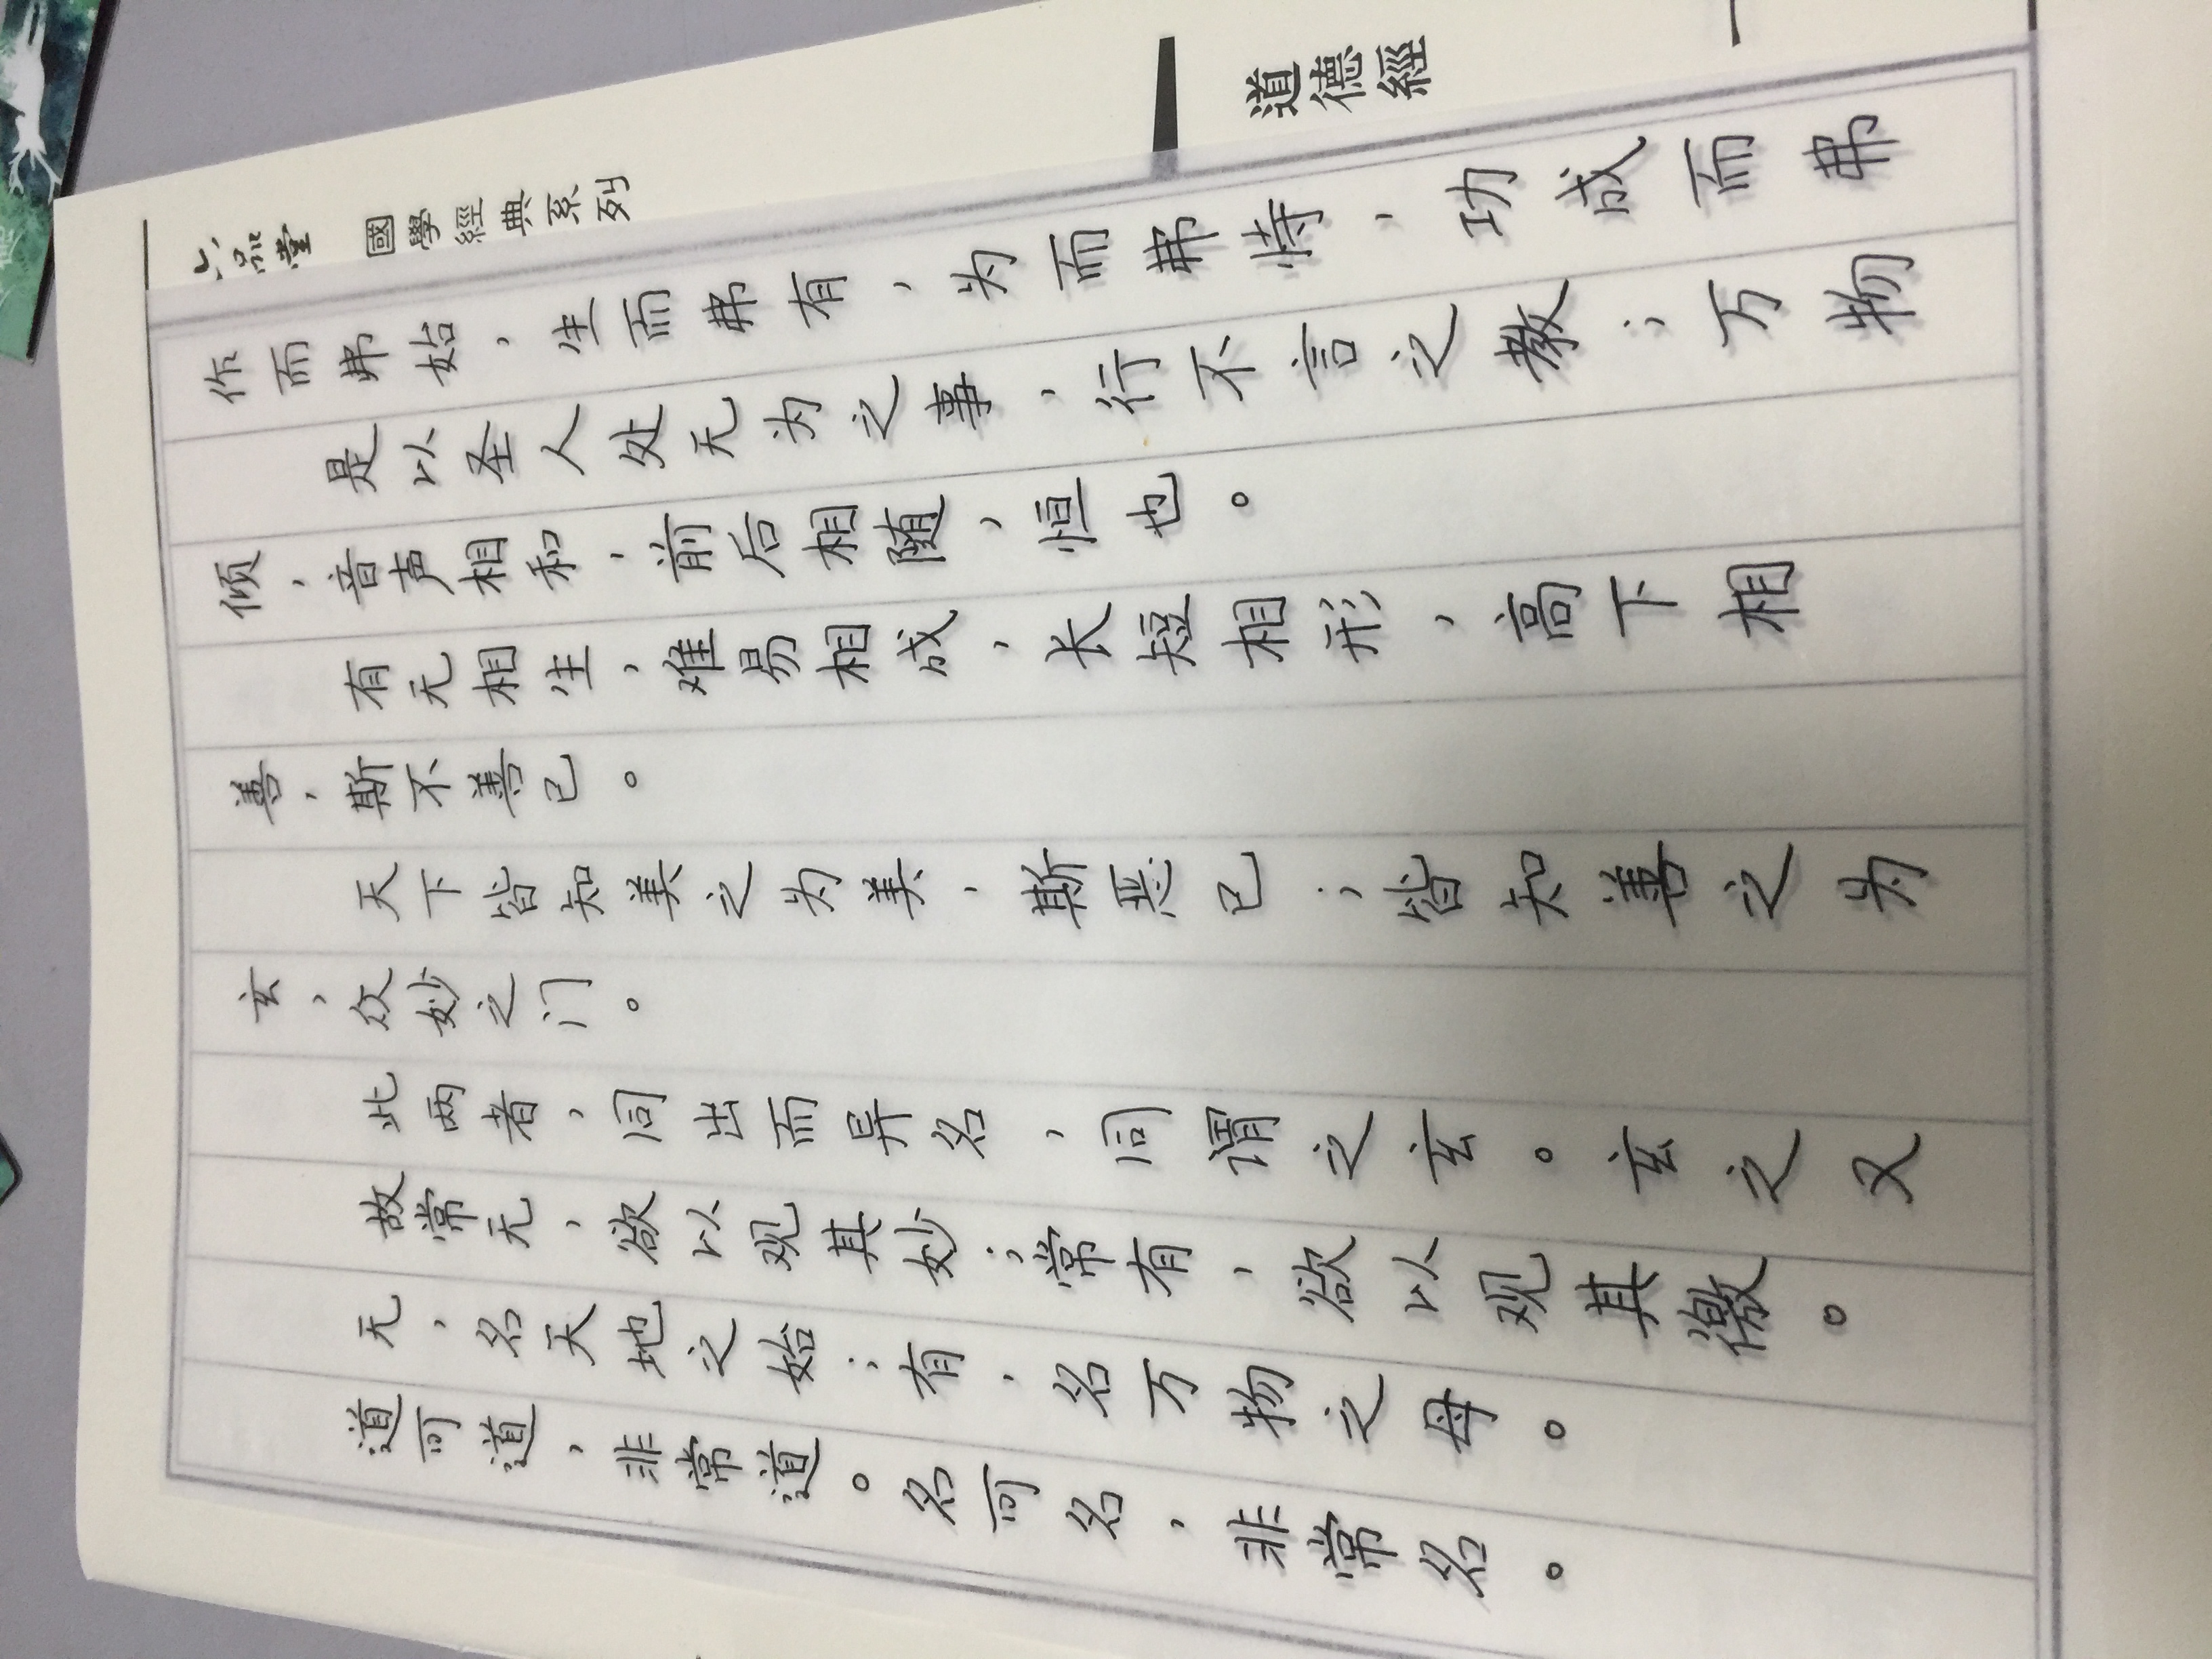 道可道，非常道。名可名，非常名。
无，名天地之始；有，名万物之母。
故常无，欲以观其妙；常有，欲以观其徼。
此两者，同出而异名，同谓之玄。玄之又
玄，众妙之门。
天下皆知美之为美，斯恶已；皆知善之为
善，斯不善已。
有无相生，难易相成，长短相形，高下相
倾，音声相和，前后相随，恒也。
是以圣人处无为之事，行不言之教；万物
作而弗始，生而弗有，为而弗恃，功成而弗
六品堂 國學經典系列
道德經
一